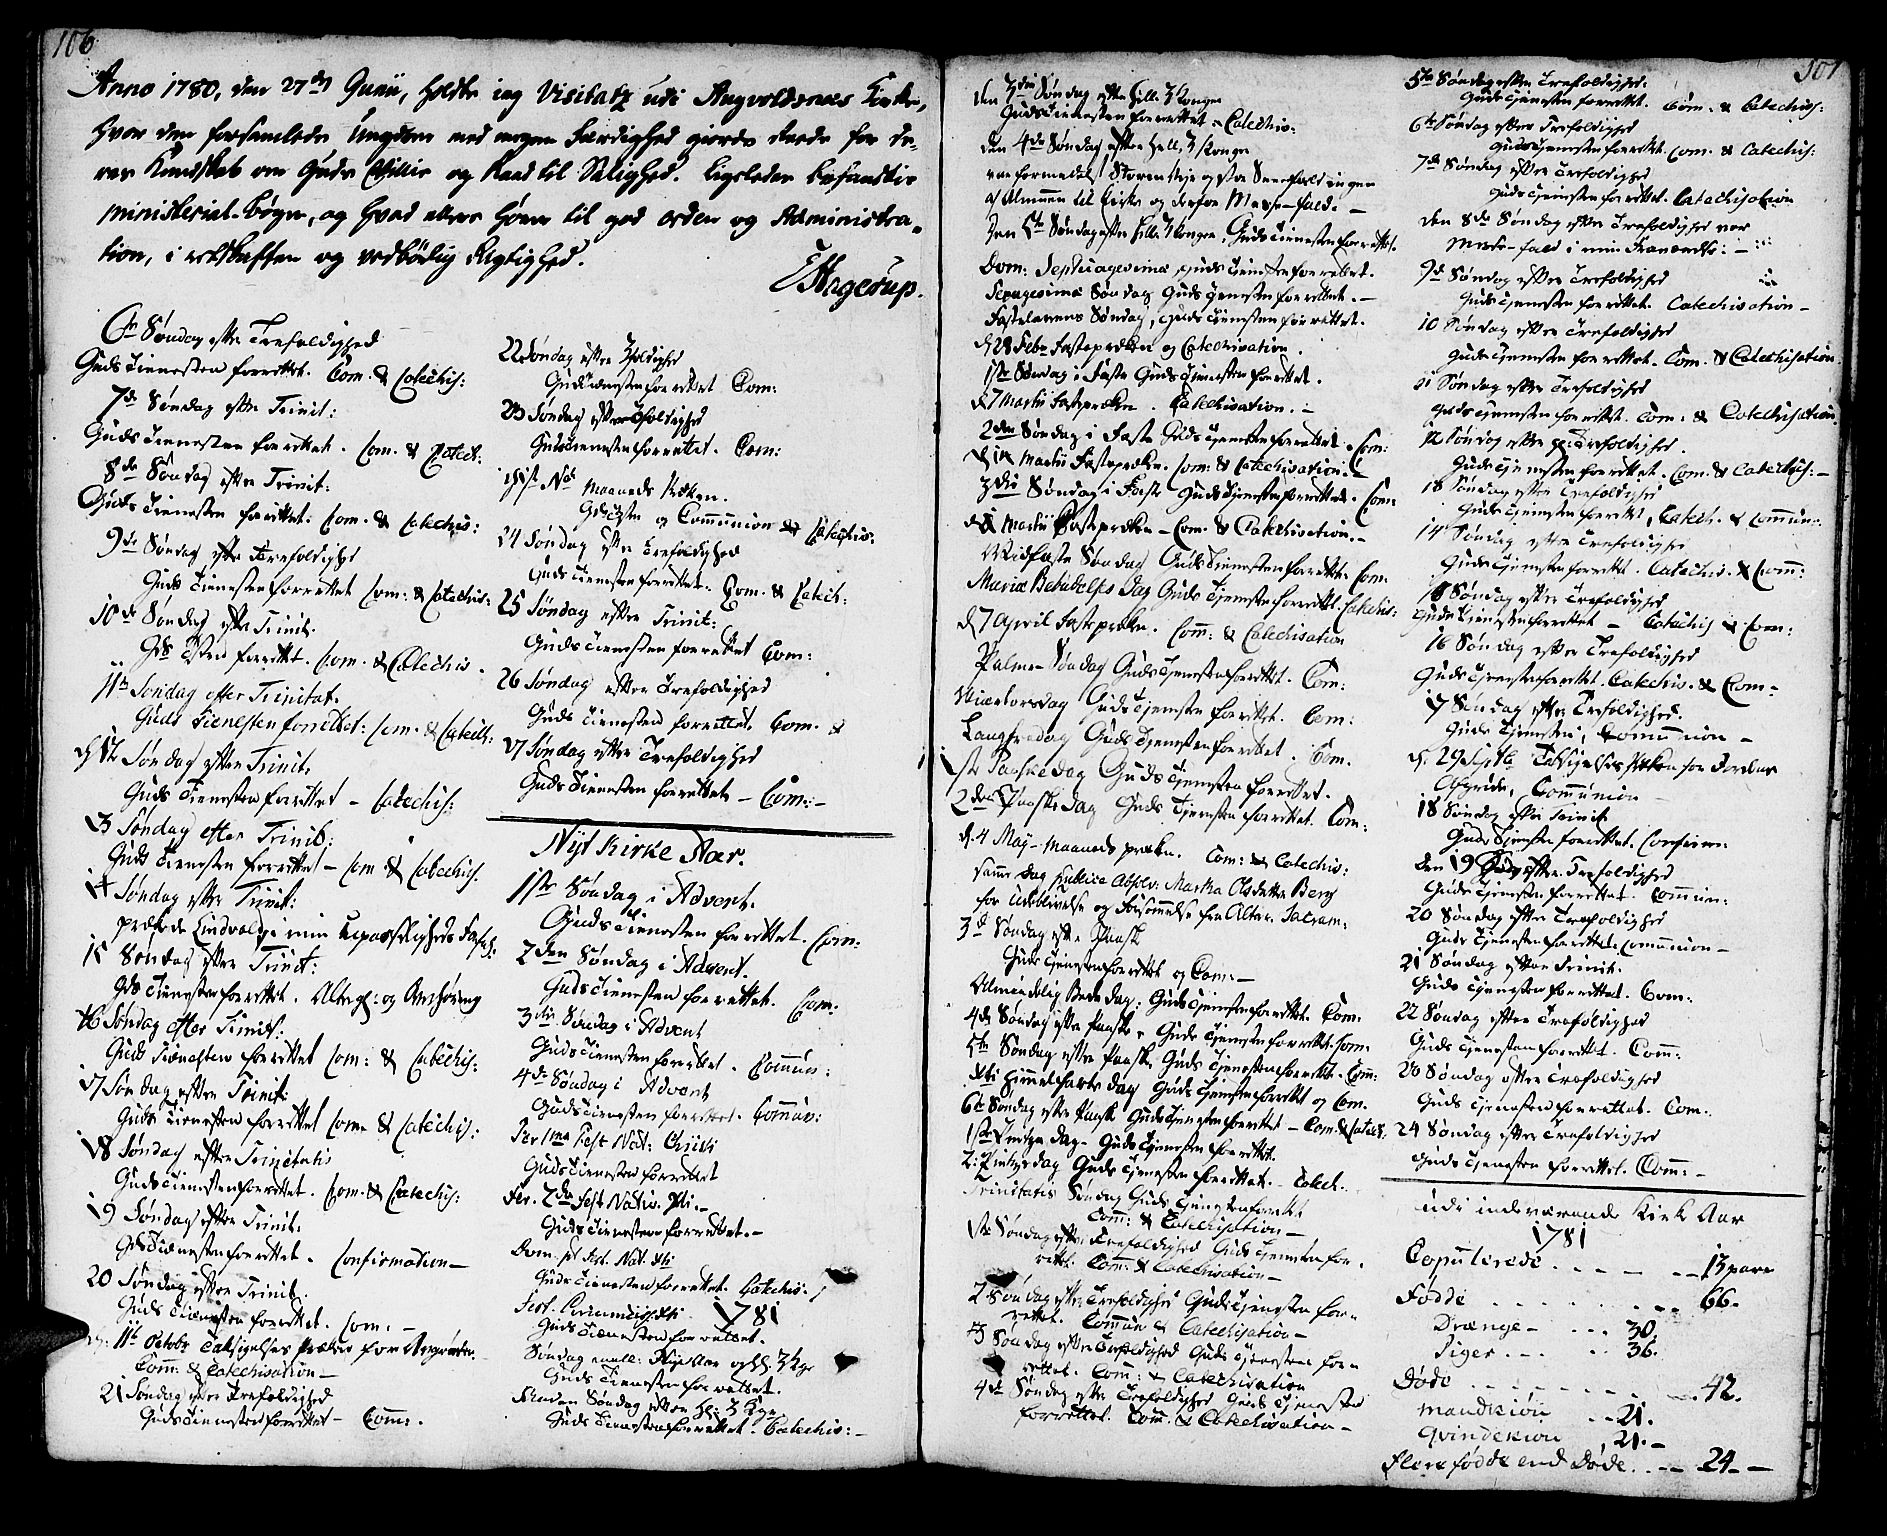 106
Anno 1780, den 27de Junii, holdte jeg Visitatz udi Angvoldsnæs Kirke,
hvor den forsamlede Ungdom med megen Færdighed giorde Rede for de-
res Kundskab om Guds Villie og Raad til Salighed. Ligeledes befandtis
ministerial-bogen, og hvad ellers hører til god orden og Administra-
tion, i ectskaffen og vedbørlig Rigtighed.
E Hagerup.
6te Søndag efter Trefoldighed
Guds Tienesten forrettet. Com. & Catechis:
7de Søndag efter Trinit:
Guds Tienesten forrettet. Com. & Catech:
8de Søndag efter Trinit:
Guds Tienesten forrettet. Com. & Catechis:
9de Søndag efter Trefoldighed
Guds Tienesten forrettet Com: & Catechis:
10de Søndag efter Trinit.
Gds Tsten forrettet. Com. & Catechis.
11te Søndag efter Trinitat.
Guds Tienesten forrettet: Com. & Catech:
d. 12 Søndag efter Trinit.
Guds Tienesten forrettet - Catechis:
13 Søndag efter Trinit:
Guds Tienesten forrettet - Com & Catechis.
14 Søndag efter Trinit:
prækede Lindvald i min upasseligheds
15 Søndag efter Trinit:
Gds Tienesten forrettet. Alterg: og
16 Søndag efter Trinit:
Guds Tienesten forrettet Com: & Catechis:
17 Søndag efter Trinit:
Guds Tienesten forrettet Com. & Catechis:
18 Søndag efter Trinitatis
Guds Tienesten forrettet. Com. & Catechis:
19 Søndag efter Trinit.
Gds Tienesten forrettet. Confirmation -
20 Søndag efter Trinit.
Guds Tienesten forrettet. Com. -
d. 11te Octobr Taksigelses Præken for
Com: & Catechisation -
21 Søndag efter Trefoldighed
Guds Tienesten forrettet - Com:.
22 Søndag efter Trefoldighed
Guds Tienesten forrettet Com:
23 Søndag efter Trefoldighed
Guds Tienesten forrettet. Com:
Nov. Maaneds Præken.
Gds Tsten og Communion & Catechis:
24 Søndag efter Trefoldighed
Guds Tienesten forrettet. Com. & Catech:
25 Søndag efter Trinit:
Guds Tienesten forrettet Com:
26 Søndag efter Trefoldighed
Guds Tienesten forrettet. Com. &
27 Søndag efter Trefoldighed
Guds Tienesten forrettet - Com: -
Nyt Kirke Aar.
1ste Søndag i Advent.
Guds Tienesten forrettet. Com:
2den Søndag i Advent.
Guds Tienesten forrettet. Com:
3die Søndag i Advent
Guds Tienesten forrettet. Commun:
4de Søndag i Advent
Guds Tienesten forrettet. Commun:
Fer 1ma Fest Nat: Christi
Guds Tienesten forrettet
Fer. 2da Fest Nativ. Xti. -
Guds Tienesten forrettet. -
Dom. p. Fest. Nat. Xti
Guds Tienesten forrettet. Catechis:
Fest. Circumcis: Xti 1781
Guds Tienesten forrettet.
Søndag emell: Nyt Aar og H 3 Kgr
Guds Tienesten forrettet.
Anden Søndag efter Hl: 3 Kgr.
Guds Tienesten forrettet. Catechis: -
107
den 3die Søndag efter hell. 3 Konger
Guds Tienesten forrettet - Catechis:
den 4de Søndag efter hell. 3 Konger
var formedelst Storm og stor Sneefald ingen
af Almuen til Kirke og derfor Messe-fald: -
Den 5te Søndag efter hell. 3 Konger. Guds Tienesten forrettet.
Dom: Septuagesima, Guds Tienesten forrettet.
Sexagesima Søndag Guds Tjenesten forrettet. -
Fastelavens Søndag, Guds Tienesten forrettet.
d. 28 Febr. Fastepræken og Catechisation.
1ste Søndag i Faste Guds Tjenesten forrettet.
d. 7 Martii Fastepræken. Catechisation. -
2den Søndag i Faste Guds Tjenesten forrettet. Com:
d. 14 Martii Fastepræken. Com: & Catechisation. -
3die Søndag i Faste Guds Tjenesten forrettet. Com:
d. Martii Fastepræken - Com. & Catechisation. -
Midfaste Søndag Guds Tjenesten forrettet Com.
Mariæ Bebudelses Dag Guds Tjenesten forrettet. Catechis:
d. 7 April Fastepræken. Comm: & Catechisation
Palme-Søndag Guds Tjenesten forrettet. Com:
Skiertorsdag Guds Tjenesten forrettet. Com:
Langfredag Guds Tjenesten forrettet. Com.
1ste Paaske dag Guds Tjenesten forrettet.
2den Paaske Dag Guds Tjenesten forrettet. Com:
d. 4 May - maaneds præken. Com: & Catechis:
samme Dag publice Absolv: Martha Olsdatter Berg
for Udeblivelse og Forsømmelse fra Alter. Sacram:
3de Søndag efter Paaske
Guds Tjenesten forrettet og Com: -
Almindelig Bededag. Guds Tjenesten forrettet. Com.
4de Søndag efter Paaske. Guds Tjenesten forrettet. Com.
5te Søndag efter Paaske Guds Tjenesten forrettet. Com:
Xti Himmelfarts dag Guds Tjenesten forrettet og Com.
6te Søndag efter Paaske Guds Tjenesten forrettet - Com & Catech.
1ste Pintze dag - Guds Tjenesten forrettet.
2. Pintzedag Guds Tjenesten forrettet. - Catech.
Trinitatis Søndag Guds Tjenesten forrettet
Com: & Catechisation -
1ste Søndag efter Trefoldighed Guds Tjenesten for-
rettet. Com: & Catechisation -
2 Søndag efter Trefoldighed Guds Tjenesten for-
rettet. Commun & Catechisation -
3 Søndag efter Trefoldighed Guds Tjenesten for-
rettet. Com: & Catechisation
4de Søndag efter Trefoldighed Guds Tjenesten
forrettet. Com. & Catechisation -
5te Søndag efter Trefoldighed.
Guds Tjenesten forrettet. Com. & Catechis:
6te Søndag efter Trefoldighed
Guds Tjenesten forrettet. Com. & Catechis:
7de Søndag efter Trefoldighed
Guds Tjenesten forrettet. Catechisation
den 8de Søndag efter Trefoldighed var
Messe-fald i min Fraværelse: -
9de Søndag efter Trefoldighed
Guds Tjenesten forrettet. Catechisation -
10 Søndag efter Trefoldighed
Guds Tjenesten forrettet. Com. & Catechisation
11 Søndag efter Trefoldighed
Guds Tjenesten forrettet. Com: & Catechisation
12 Søndag efter Trefoldighed.
Guds Tjenesten forrettet. Com. & Catechis: -
13 Søndag efter Trefoldighed
Guds Tjenesten forrettet, Catech. & Commun:
14 Søndag efter Trefoldighed
Guds Tjenesten forrettet. Catechis. & Comm:
15 Søndag efter Trefoldighed
Guds Tjenesten forrettet - Catechis & Com:
16 Søndag efter Trefoldighed
Guds Tjenesten forrettet. Catechis. & Com -
17 Søndag efter Trefoldighed.
Guds Tjenesten, Communion -
d. 29 Septb. Taksigelses Præken for Jordens
Afgrøde, Communion -
18 Søndag efter Trinit.
Guds Tjenesten forrettet. Confirm:
den 19 Søndag efter Trefoldighed
Guds Tjenesten forrettet. Commun:
20 Søndag efter Trefoldighed
Guds Tjenesten forrettet. Communion -
21 Søndag efter Trinit.
Guds Tjenesten forrettet. Com:
22 Søndag efter Trefoldighed
Guds Tjenesten forrettet. Comm:
23 Søndag efter Trefoldighed
Guds Tjenesten forrettet. Com:
24 Søndag efter Trefoldighed
Guds Tjenesten forrettet. Comm: -
udi indeværende Kirk Aar
1781
Copulerede . . . . - - 13 pare
Fødde . . . . . 66.
Drænge - . . . 30.
Piger . . - . . 36.
Døde . . . . . 42.
mandkiøn . . 21.
Qvindekiøn . 21. -
flere fødde end Døde . . - - 24 - -